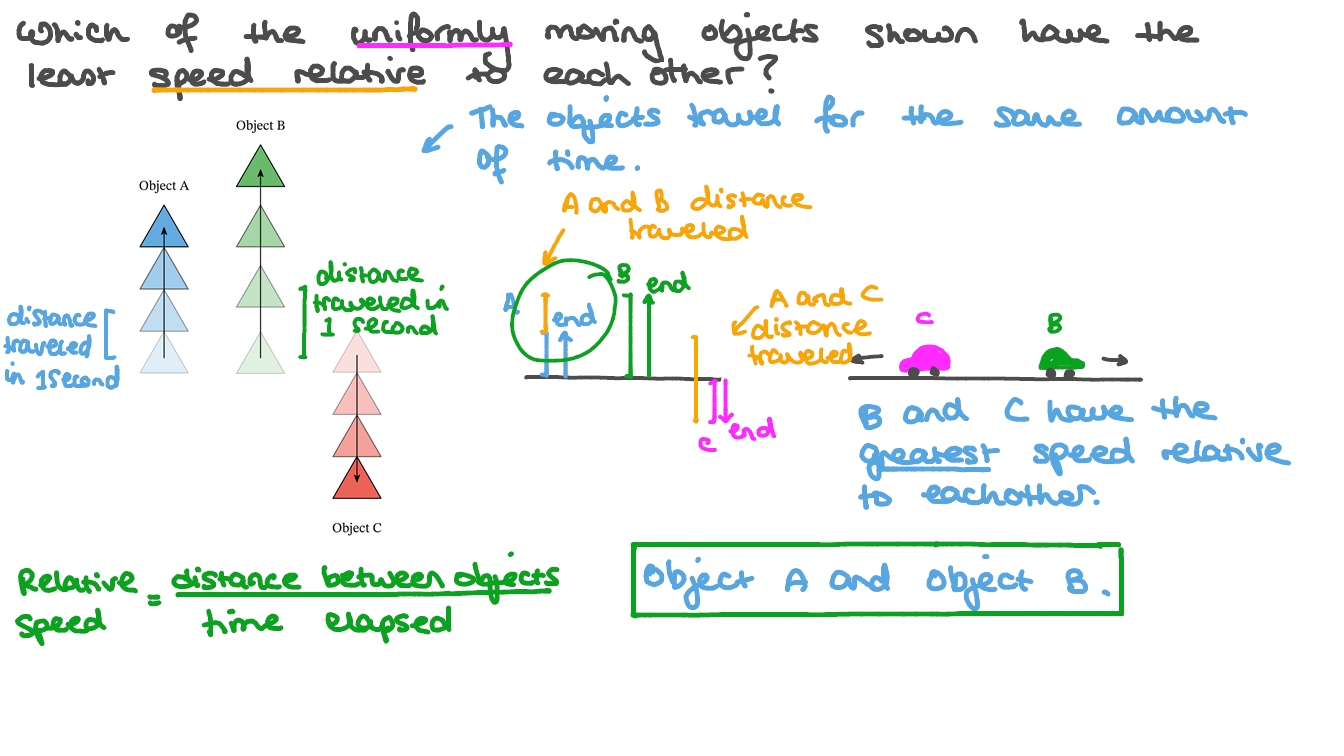 Which of the uniformly moving objects shown have the
least speed relative to each other?
The objects travel for the same amount
of time.
Object B
Object A
A and B distance
traveled
distance
traveled in
1 second
distance
traveled
in 1second
A
end
B
end
A and C
distance
traveled
C
end
C
B
B and C have the
greatest speed relative
to eachother.
Object C
Relative speed = distance between objects
time elapsed
Object A and Object B.